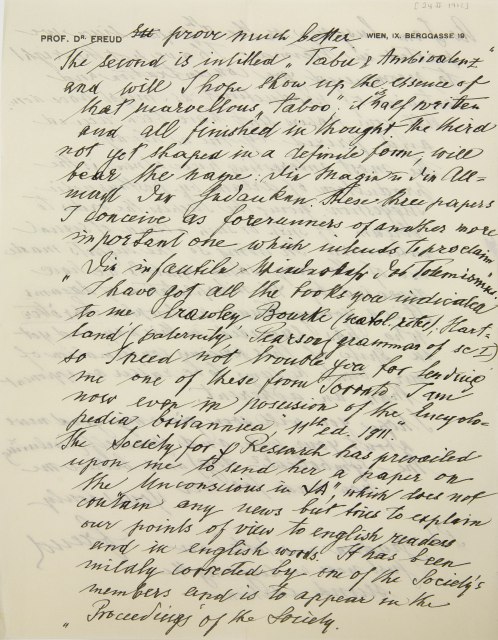 [24 II 1912]
PROF. DR. FREUD prove much better WIEN, IX. BERGGASSE 19.
The second is intitled „Tabu & Ambivalenz"
and will I hope show up the essence of
that marvellous „taboo". It is half written
and all finished in thought the third
not yet shaped in a definite form, will
bear the name: Die Magie u die All-
macht der Gedanken. These three papers
I conceive as forerunners of another more
important one which intends to proclaim
„Die infantile Wiederkehr des Totemismus"
I have got all the books you indicated
to me Crawley, Bourke (scatol. rites), Hart-
land (paternity) Pearson (grammar of sc I)
so I need not trouble you for lending
me one of these from Toronto. I am
now even in possession of the Encyclo-
pedia britannica 11th ed. 1911.
The Society for ψ Research has prevailed
upon me to send her a paper on
the Unconscious in ψA", which does not
contain any news but tries to explain
our points of view to english readers
and in english words. It has been
mildly corrected by one of the Society's
members and is to appear in the
„Proceedings" of the Society.